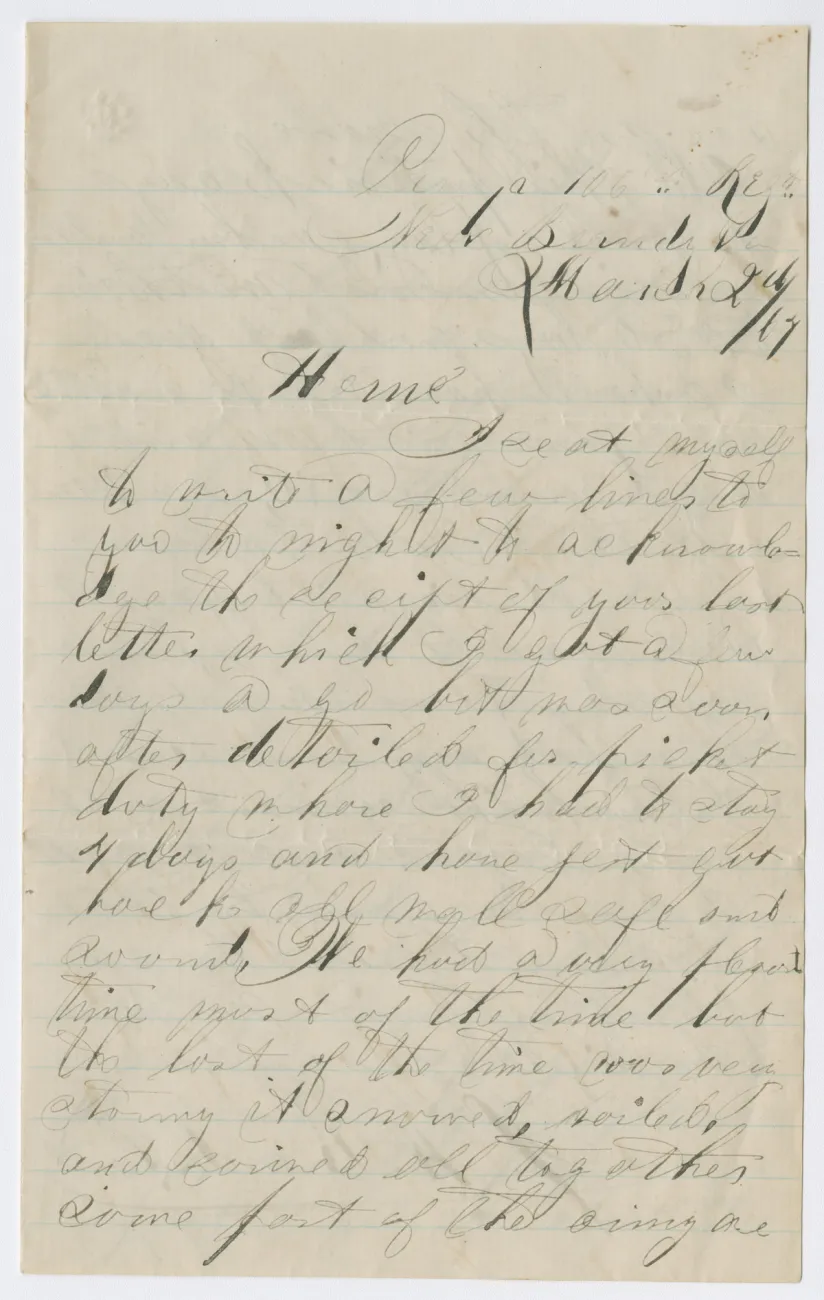 Camp 106th Regt
Near Brandy Va
March 24
Home
I seat myself
to write a few lines to
you to night to acknowle=
dge the receipt of your last
letter which I got a few
days a go but was soon
after detailed for picket
duty where I had to stay
4 days and have jest got
back all well safe and
sound, We had a very
time most of the time but
the last of the time was very
stormy it snowed, hailed,
and rained all together
some part of the army are